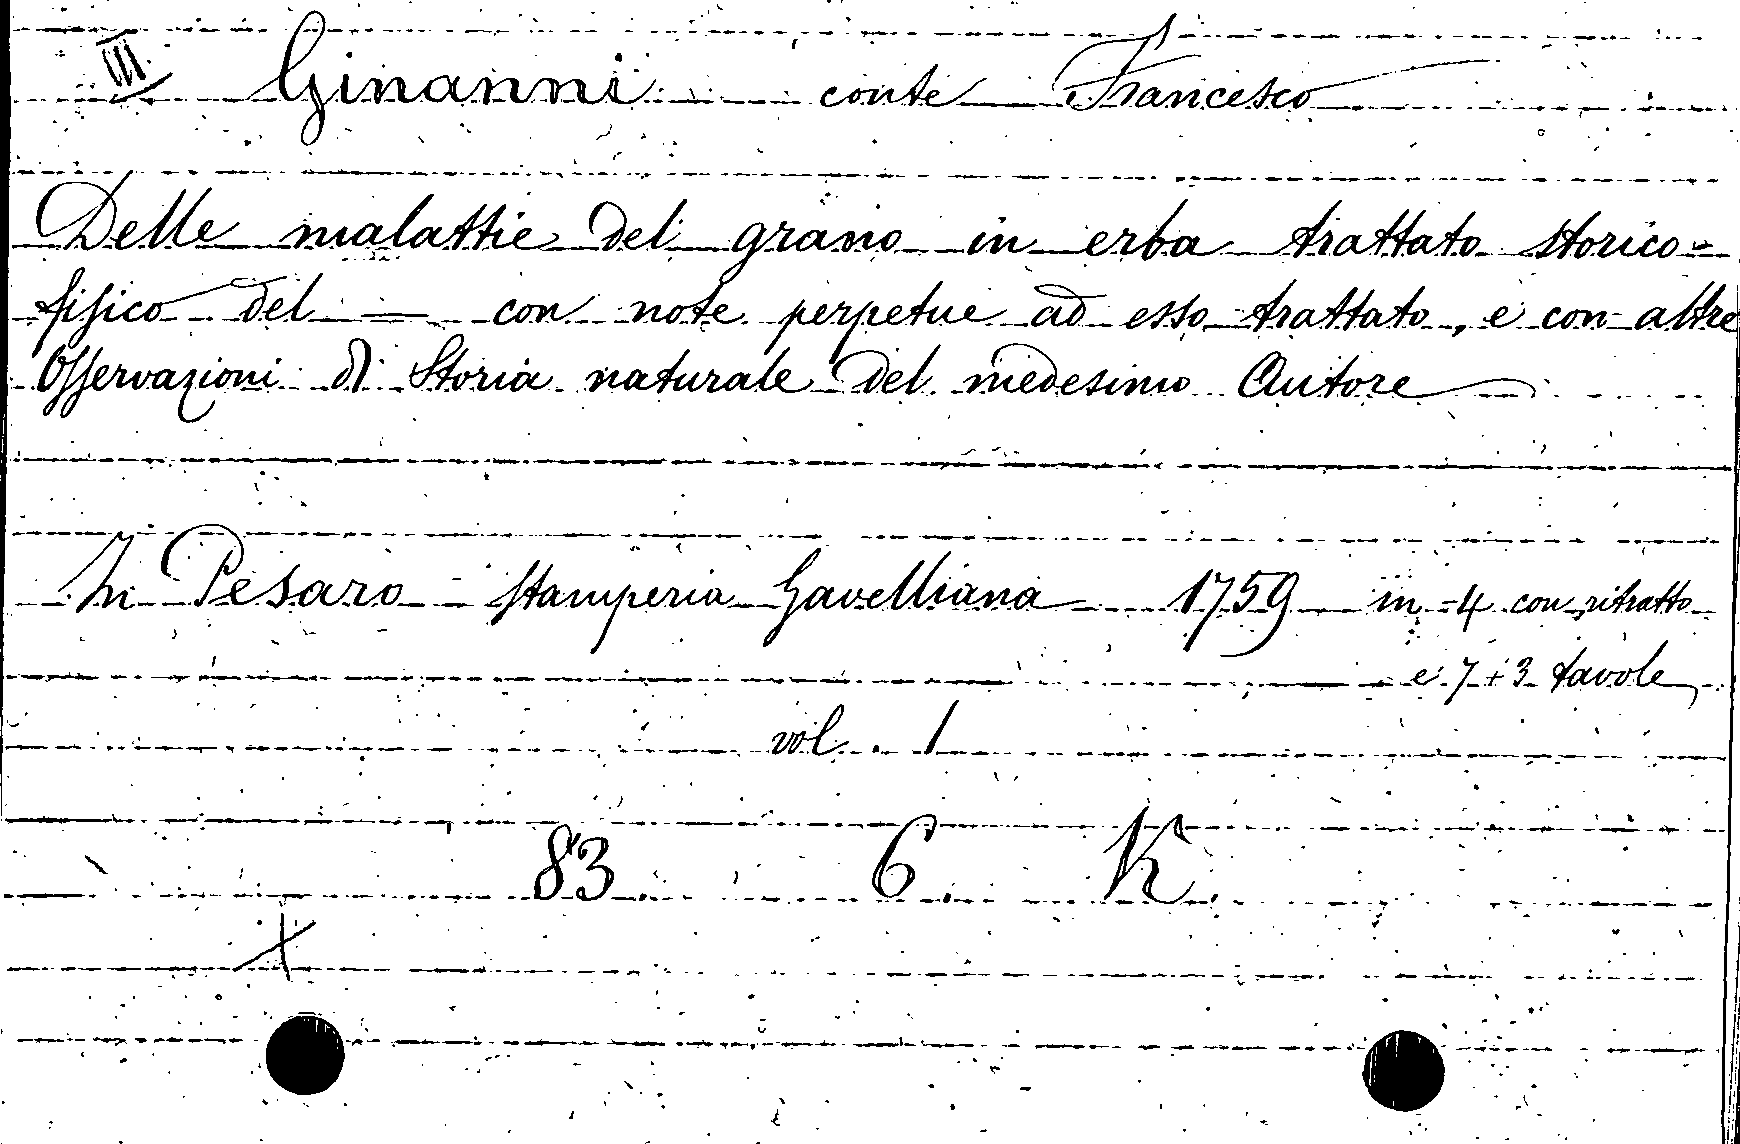 III. Ginanni conte Francesco
Delle malattie del grano in erba trattato storico-
fisico del — con note perpetue ad esso trattato, e con altre
Osservazioni di Storia naturale del medesimo Autore
In Pesaro - stamperia Gavelliana 1759 in-4 con ritratto
e 7+3 tavole
vol. 1
83. 6. K.